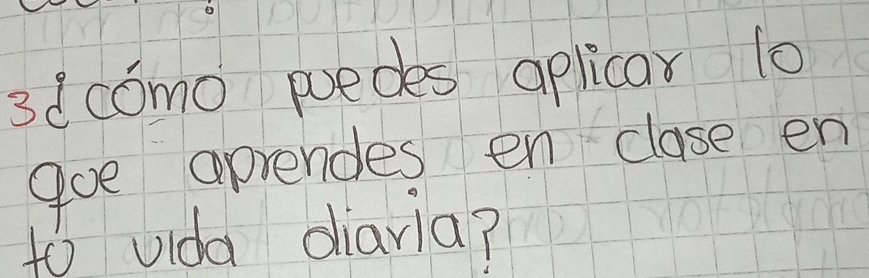 3¿cómo puedes aplicar lo
que aprendes en clase en
tu vida diaria?